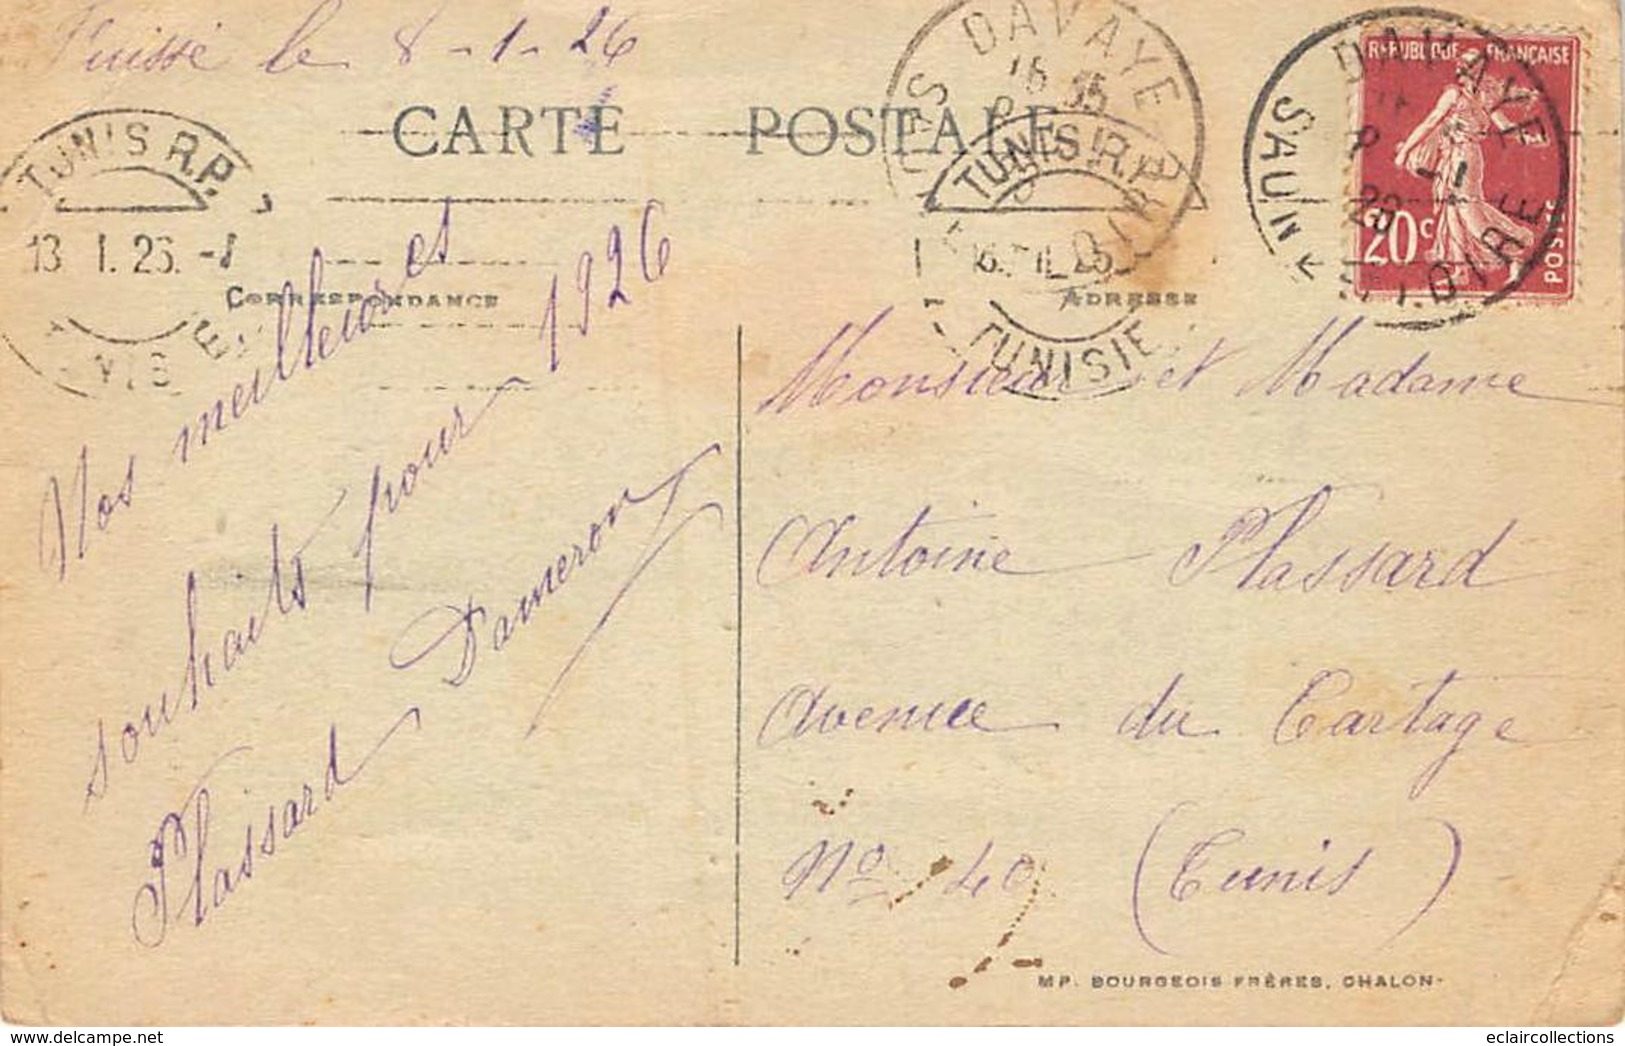 Fuissé le 8-1-26
CARTE POSTALE
TUNIS R.P.
13 I. 26.
DAVAYE
16 35
TUNIS R.P.
TUNISIE
DAVAYE
SAÔNE-ET-LOIRE
REPUBLIQUE FRANÇAISE
20c
POSTES
CORRESPONDANCE
ADRESSE
Nos meilleures
souhaits pour 1926
Plassard Dameron
Monsieur et Madame
Antoine Plassard
Avenue du Cartage
No 40 (Tunis)
IMP. BOURGEOIS FRÈRES, CHALON-
eclaircollections